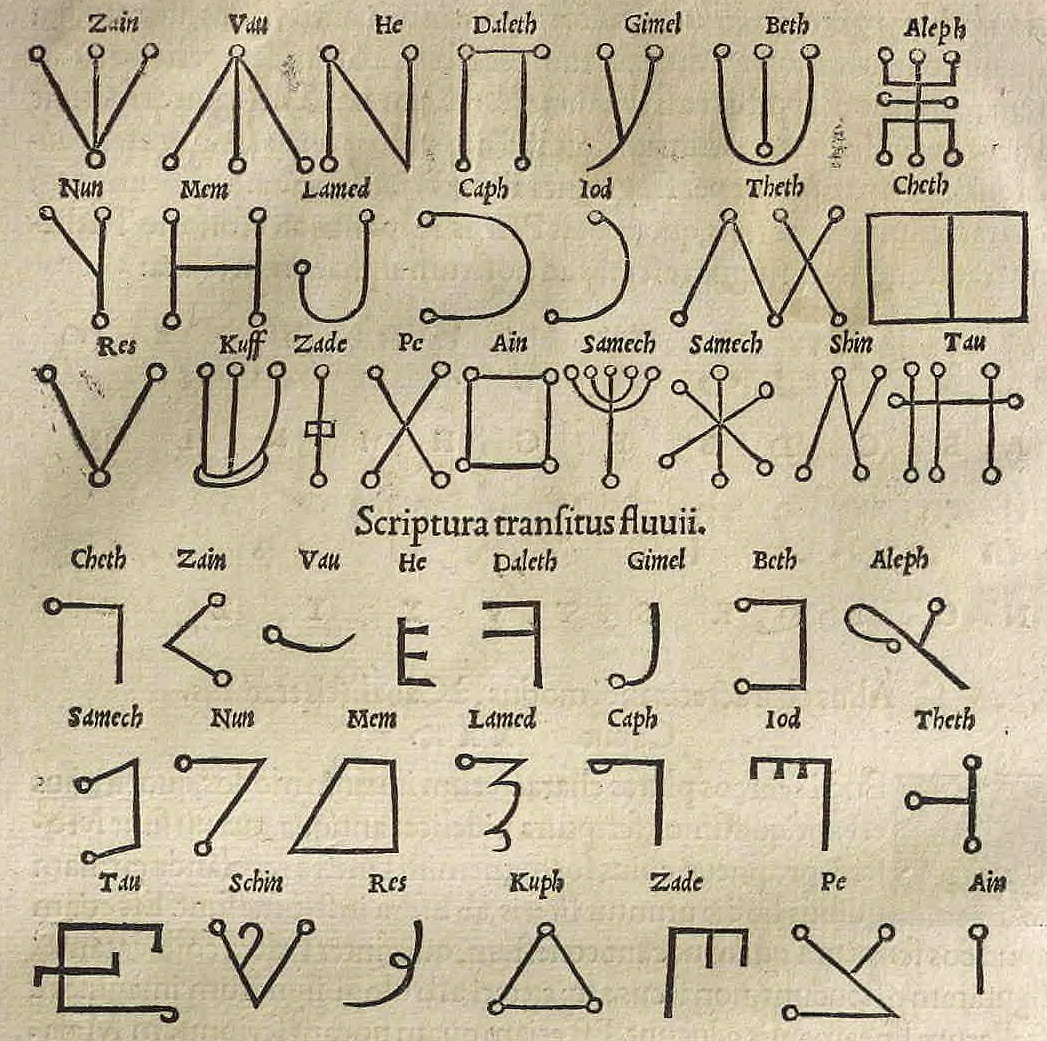 Zain Vau He Daleth Gimel Beth Aleph
Nun Mem Lamed Caph Iod Theth Cheth
Res Kuff Zade Pe Ain Samech Samech Shin Tau
Scriptura tranſitus fluuii.
Cheth Zain Vau He Daleth Gimel Beth Aleph
Samech Nun Mem Lamed Caph Iod Theth
Tau Schin Res Kuph Zade Pe Ain